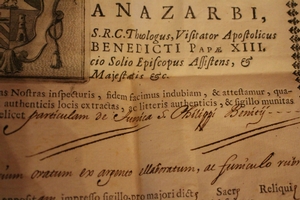 ANAZARBI,
S.R.C. Theologus, Visitator Apostolicus
BENEDICTI PAPÆ XIII.
cio Solio Episcopus Assistens, &
Majestatis &c.
as Nostras inspecturis, fidem facimus indubiam, & attestamur, qua
authenticis locis extractas, ac litteris authenticis, & sigillo munitas
licet particulam de Tunica S. Philippi Benitij
oratum ex argenteo elaboratum, ac funiculo
impresso sigillo, pro majori dict Sacr Reliqui